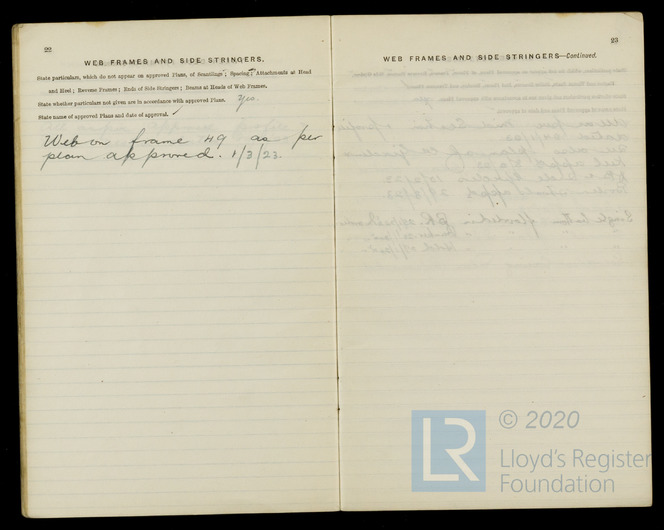 22
WEB FRAMES AND SIDE STRINGERS.
State particulars, which do not appear on approved Plans, of Scantlings; Spacing; Attachments at Head
and Heel; Reverse Frames; Ends of Side Stringers; Beams at Heads of Web Frames.
State whether particulars not given are in accordance with approved Plans. Yes.
State name of approved Plans and date of approval.
Web on frame 49 as per
plan approved. 1/3/23.
23
WEB FRAMES AND SIDE STRINGERS—Continued.
LR
© 2020
Lloyd's Register
Foundation